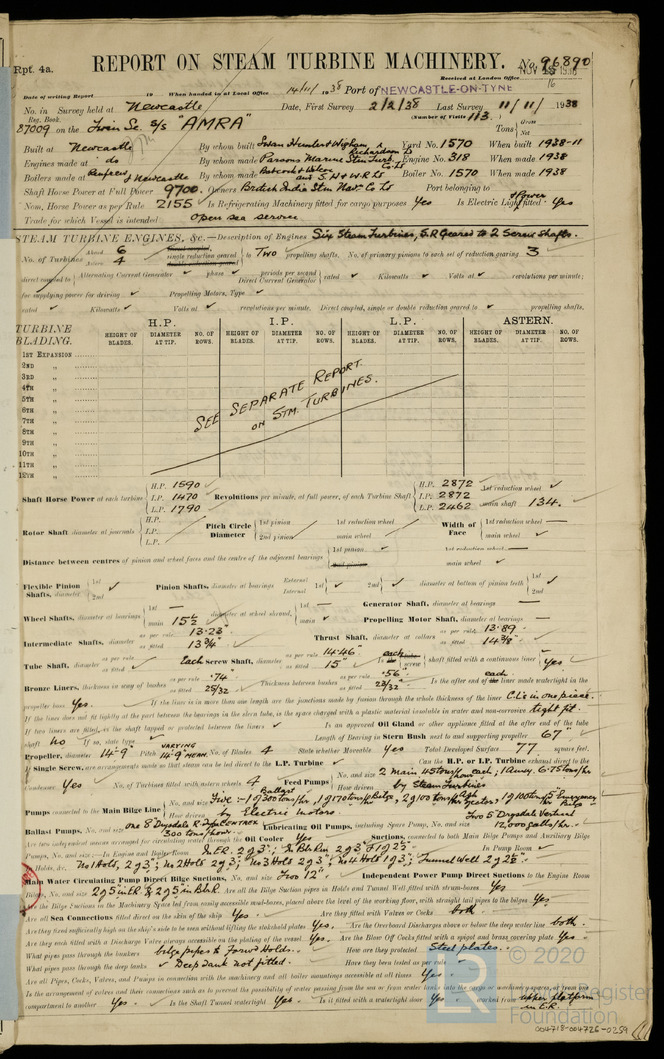 Rpt. 4a.
REPORT ON STEAM TURBINE MACHINERY. No. 96890
Received at London Office NOV 15 1938
Date of writing Report 19 When handed in at Local Office 14/11/1938 Port of NEWCASTLE-ON-TYNE
No. in Survey held at Newcastle Date, First Survey 2/2/38 Last Survey 11/11/1938
Reg. Book. (Number of Visits 113.)
87009 on the Twin Sc. S/S "AMRA" Tons Gross Net
Built at Newcastle By whom built Swan Hunter & Wigham Richardson Ld Yard No. 1570 When built 1938-11
Engines made at do By whom made Parsons Marine Stm Turb. Co Ld Engine No. 318 When made 1938
Boilers made at Renfrew & Newcastle By whom made Babcock & Wilcox and S. H & W. R Ld Boiler No. 1570 When made 1938
Shaft Horse Power at Full Power 9700. Owners British India Stm Nav. Co Ld Port belonging to
Nom. Horse Power as per Rule 2155 Is Refrigerating Machinery fitted for cargo purposes Yes Is Electric Light & Power fitted Yes
Trade for which Vessel is intended Open sea service
STEAM TURBINE ENGINES, &c.—Description of Engines Six Steam Turbines, S.R Geared to 2 Screw shafts.
No. of Turbines Ahead 6 Astern 4 single reduction geared to Two propelling shafts. No. of primary pinions to each set of reduction gearing 3
direct coupled to Alternating Current Generator phase periods per second Direct Current Generator rated Kilowatts Volts at revolutions per minute;
for supplying power for driving Propelling Motors, Type
rated Kilowatts Volts at revolutions per minute. Direct coupled, single or double reduction geared to propelling shafts.
TURBINE BLADING. H.P. I.P. L.P. ASTERN.
HEIGHT OF BLADES. DIAMETER AT TIP. NO. OF ROWS. HEIGHT OF BLADES. DIAMETER AT TIP. NO. OF ROWS. HEIGHT OF BLADES. DIAMETER AT TIP. NO. OF ROWS. HEIGHT OF BLADES. DIAMETER AT TIP. NO. OF ROWS.
1ST EXPANSION
2ND "
3RD "
4TH "
5TH "
6TH "
7TH "
8TH "
9TH "
10TH "
11TH "
12TH "
SEE SEPARATE REPORT
ON STM. TURBINES.
Shaft Horse Power at each turbine H.P. 1590 I.P. 1470 L.P. 1790 Revolutions per minute, at full power, of each Turbine Shaft H.P. 2872 I.P. 2872 L.P. 2462 1st reduction wheel main shaft 134.
Rotor Shaft diameter at journals H.P. I.P. L.P. Pitch Circle Diameter 1st pinion 2nd pinion 1st reduction wheel main wheel Width of Face 1st reduction wheel main wheel
Distance between centres of pinion and wheel faces and the centre of the adjacent bearings 1st pinion 1st reduction wheel main wheel
Flexible Pinion Shafts, diameter 1st 2nd Pinion Shafts, diameter at bearings External Internal 1st 2nd diameter at bottom of pinion teeth 1st 2nd
Wheel Shafts, diameter at bearings 1st main 15½ diameter at wheel shroud, 1st main Generator Shaft, diameter at bearings
Propelling Motor Shaft, diameter at bearings
Intermediate Shafts, diameter as per rule 13.23" as fitted 13¾" Thrust Shaft, diameter at collars as per rule 13.89 as fitted 14⅜"
Tube Shaft, diameter as per rule as fitted Each Screw Shaft, diameter as per rule 14.46" as fitted 15" Is each screw shaft fitted with a continuous liner Yes
Bronze Liners, thickness in way of bushes as per rule .74" as fitted 25/32" Thickness between bushes as per rule .56" as fitted 23/32" Is the after end of each liner made watertight in the
propeller boss Yes. If the liner is in more than one length are the junctions made by fusion through the whole thickness of the liner C.L's in one piece.
If the liner does not fit tightly at the part between the bearings in the stern tube, is the space charged with a plastic material insoluble in water and non-corrosive tight fit.
If two liners are fitted, is the shaft lapped or protected between the liners Is an approved Oil Gland or other appliance fitted at the after end of the tube
shaft no If so, state type Length of Bearing in Stern Bush next to and supporting propeller 67"
Propeller, diameter 14'-9" Pitch VARYING 14'-9" MEAN. No. of Blades 4 State whether Moveable Yes Total Developed Surface 77 square feet.
If Single Screw, are arrangements made so that steam can be led direct to the L.P. Turbine Can the H.P. or I.P. Turbine exhaust direct to the
Condenser Yes No. of Turbines fitted with astern wheels 4 Feed Pumps No. and size 2 Main 45 tons/hour each; How driven by Steam Turbines
Pumps connected to the Main Bilge Line No. and size How driven by Electric motors
Ballast Pumps, No. and size one 8" Drysdale 300 tons/hour. Lubricating Oil Pumps, including Spare Pump, No. and size Two 5" Drysdale Vertical 12,000 galls/hr.
Are two independent means arranged for circulating water through the Oil Cooler Yes Suctions, connected to both Main Bilge Pumps and Auxiliary Bilge
Pumps, No. and size:—In Engine and Boiler Room In Pump Room
In Holds, &c. No 1 Hold, 2 of 3"; No 2 Hold 2 of 3"; No 3 Hold 2 of 3"; No 4 Hold 1 of 3"; Tunnel Well 2 of 2½".
Main Water Circulating Pump Direct Bilge Suctions, No. and size Two 12" Independent Power Pump Direct Suctions to the Engine Room
Bilges, No. and size 2 of 5" in E.R. & 2 of 5" in Blr R. Are all the Bilge Suction pipes in Holds and Tunnel Well fitted with strum-boxes Yes
Are the Bilge Suctions in the Machinery Space led from easily accessible mud-boxes, placed above the level of the working floor, with straight tail pipes to the bilges Yes
Are all Sea Connections fitted direct on the skin of the ship Yes Are they fitted with Valves or Cocks both
Are they fixed sufficiently high on the ship's side to be seen without lifting the stokehold plates Yes. Are the Overboard Discharges above or below the deep water line both.
Are they each fitted with a Discharge Valve always accessible on the plating of the vessel Yes Are the Blow Off Cocks fitted with a spigot and brass covering plate Yes
What pipes pass through the bunkers bilge pipes to Forwd Holds. How are they protected Steel plates.
What pipes pass through the deep tanks Deep tank not fitted. Have they been tested as per rule
Are all Pipes, Cocks, Valves, and Pumps in connection with the machinery and all boiler mountings accessible at all times Yes
Is the arrangement of valves and their connections such as to prevent the possibility of water passing from the sea or from water tanks into the cargo or machinery spaces, or from one
compartment to another Yes Is the Shaft Tunnel watertight Yes Is it fitted with a watertight door Yes worked from upper platform in E.R.
© 2020
LR
Lloyd's Register
Foundation
004718-004726-0259